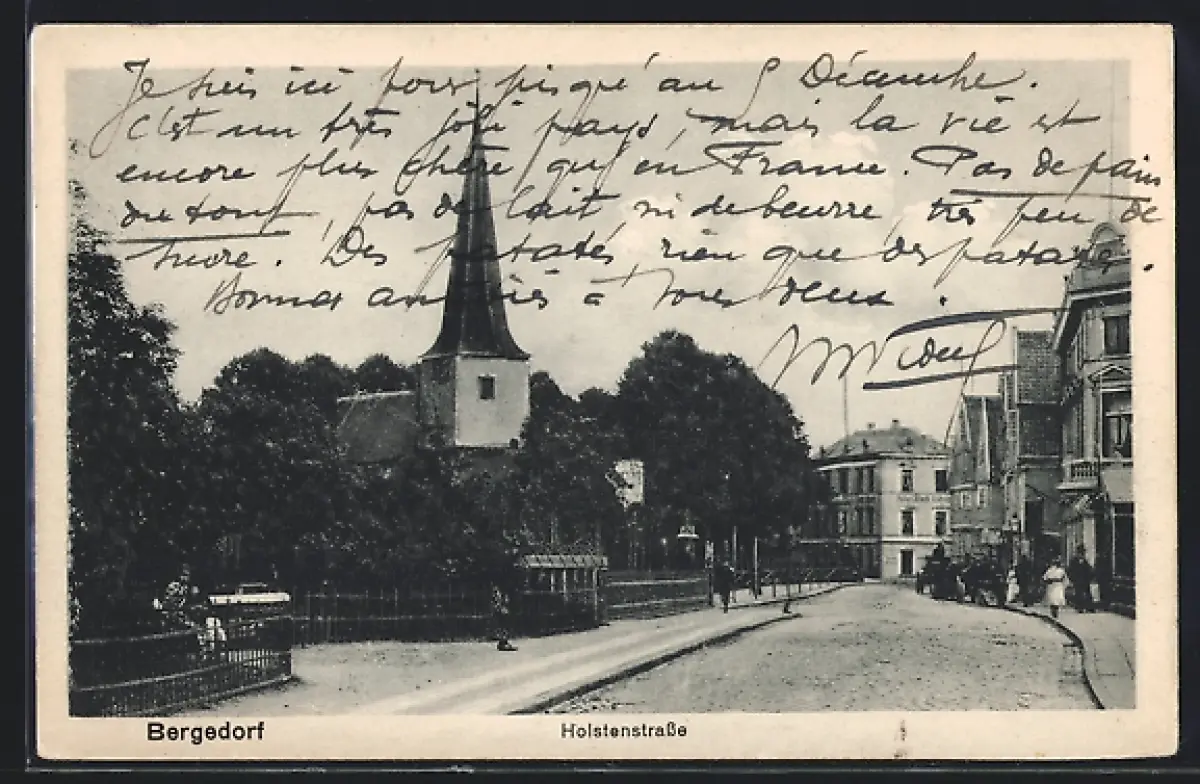 Je suis ici pour jusqu'au 9 Décembre.
C'est un très joli pays, mais la vie est
encore plus chère qu'en France. Pas de pain
du tout, pas de lait ni de beurre, très peu de
sucre. Des patates, rien que des patates.
Bonnes amitiés à Vous deux.
Bergedorf
Holstenstraße